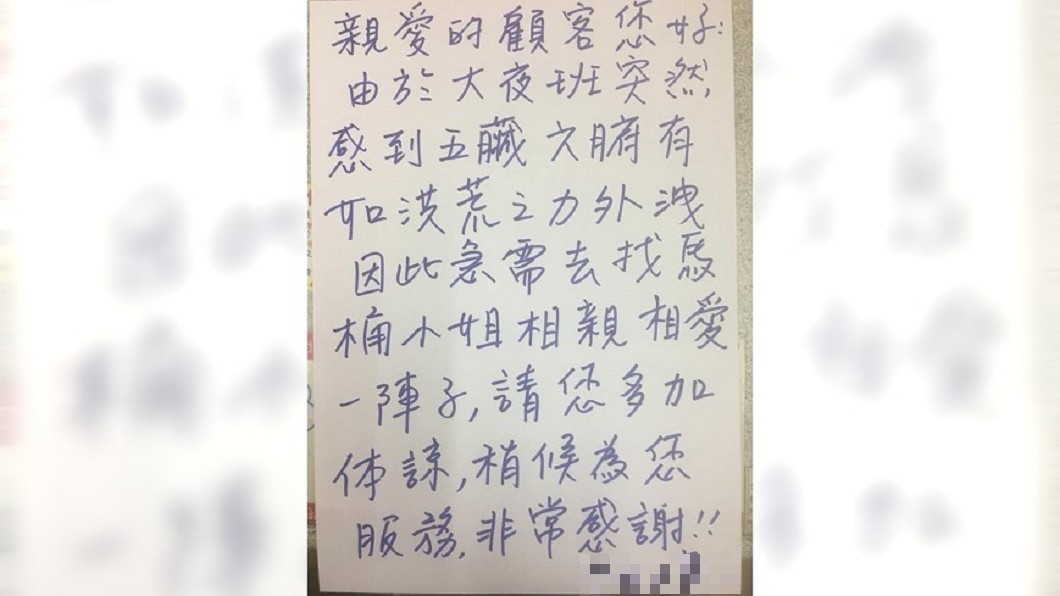 親愛的顧客您好:
由於大夜班突然
感到五臟六腑有
如洪荒之力外洩
因此急需去找馬
桶小姐相親相愛
一陣子,請您多加
体諒,稍候為您
服務,非常感謝!!